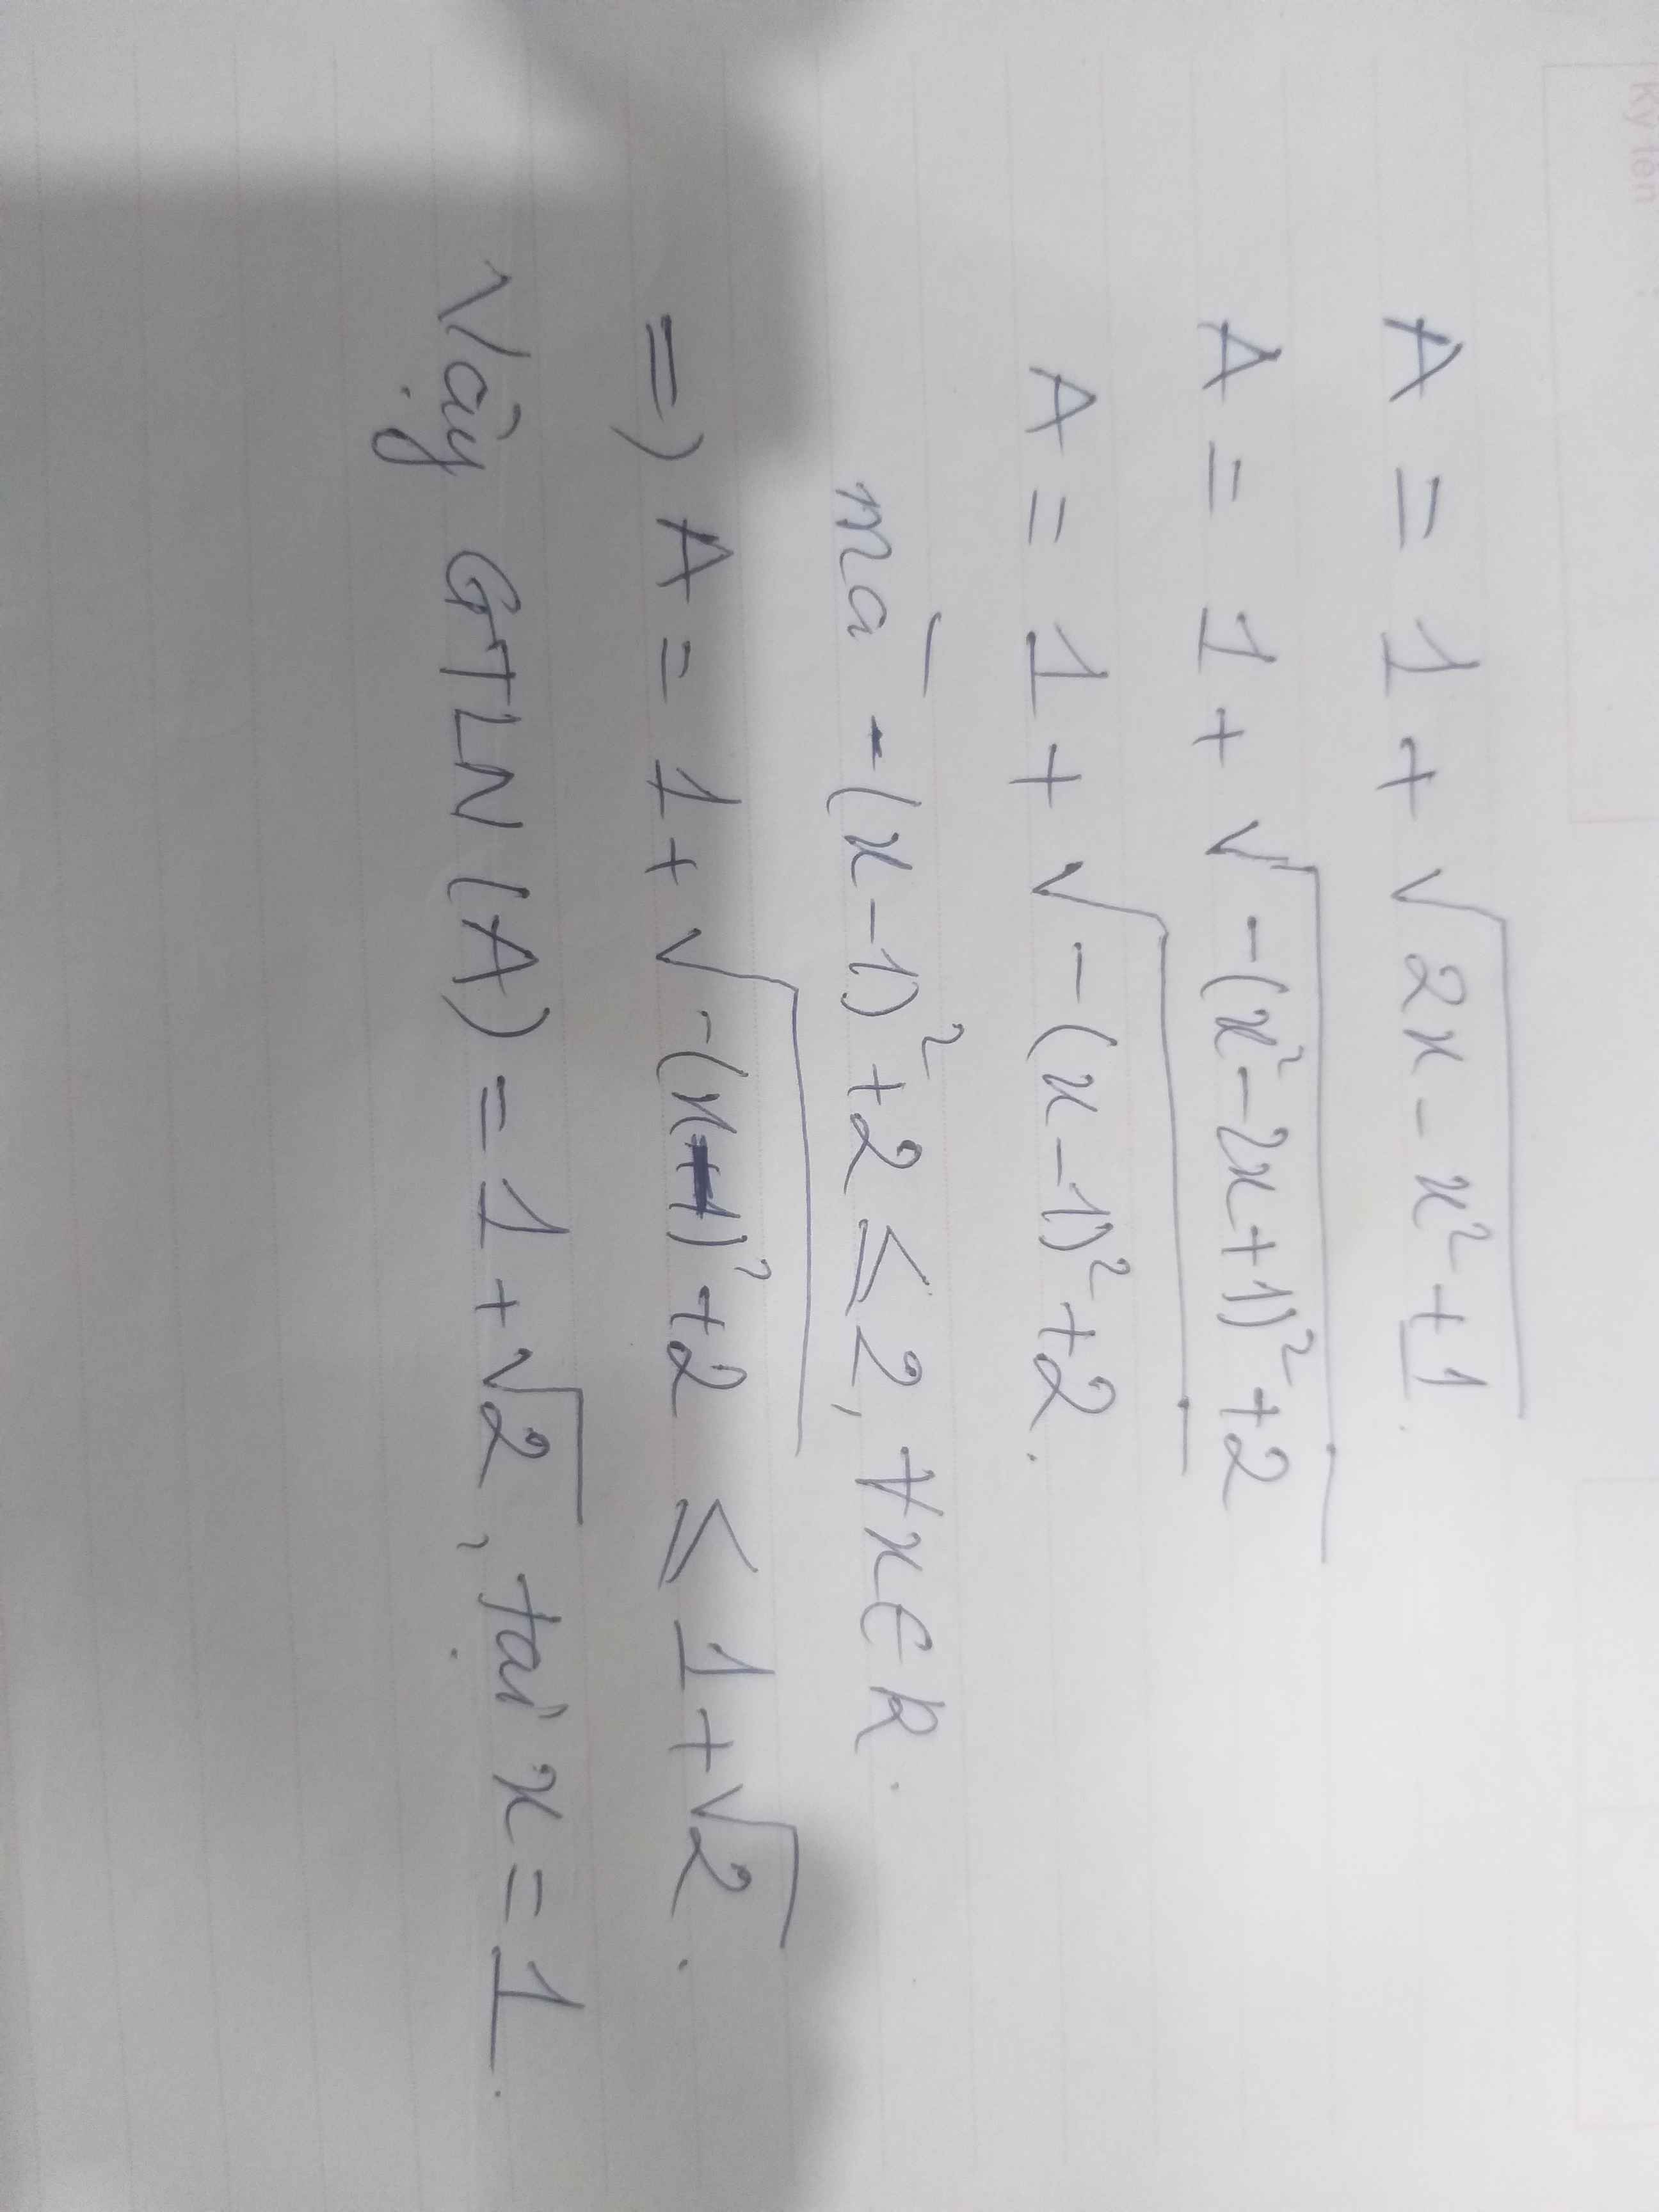 Ký tên
A = 1 + √(2x - x² + 1).
A = 1 + √(-(x² - 2x + 1)² + 2)
A = 1 + √(-(x - 1)² + 2).
mà -(x - 1)² + 2 ≤ 2, ∀x ∈ R.
=) A = 1 + √(-(x - 1)² + 2) ≤ 1 + √2.
Vậy GTLN (A) = 1 + √2, tại x = 1.